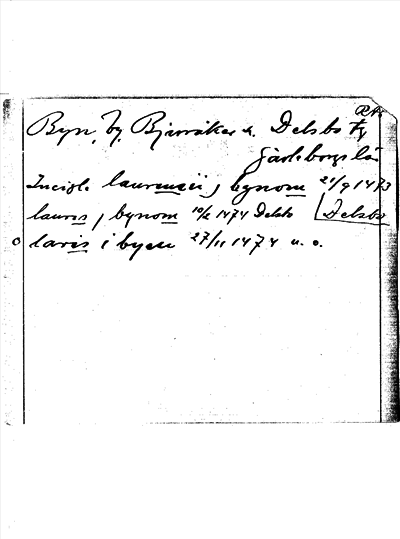 RA.
Byn, by, Bjuråker s. Delsbo tg
Gävleborgs län
laurencii j bynom 21/9 1473
laurers j bynom 10/2 1474 Delsbo [Delsbo
laris i byen 27/11 1474 u. o.